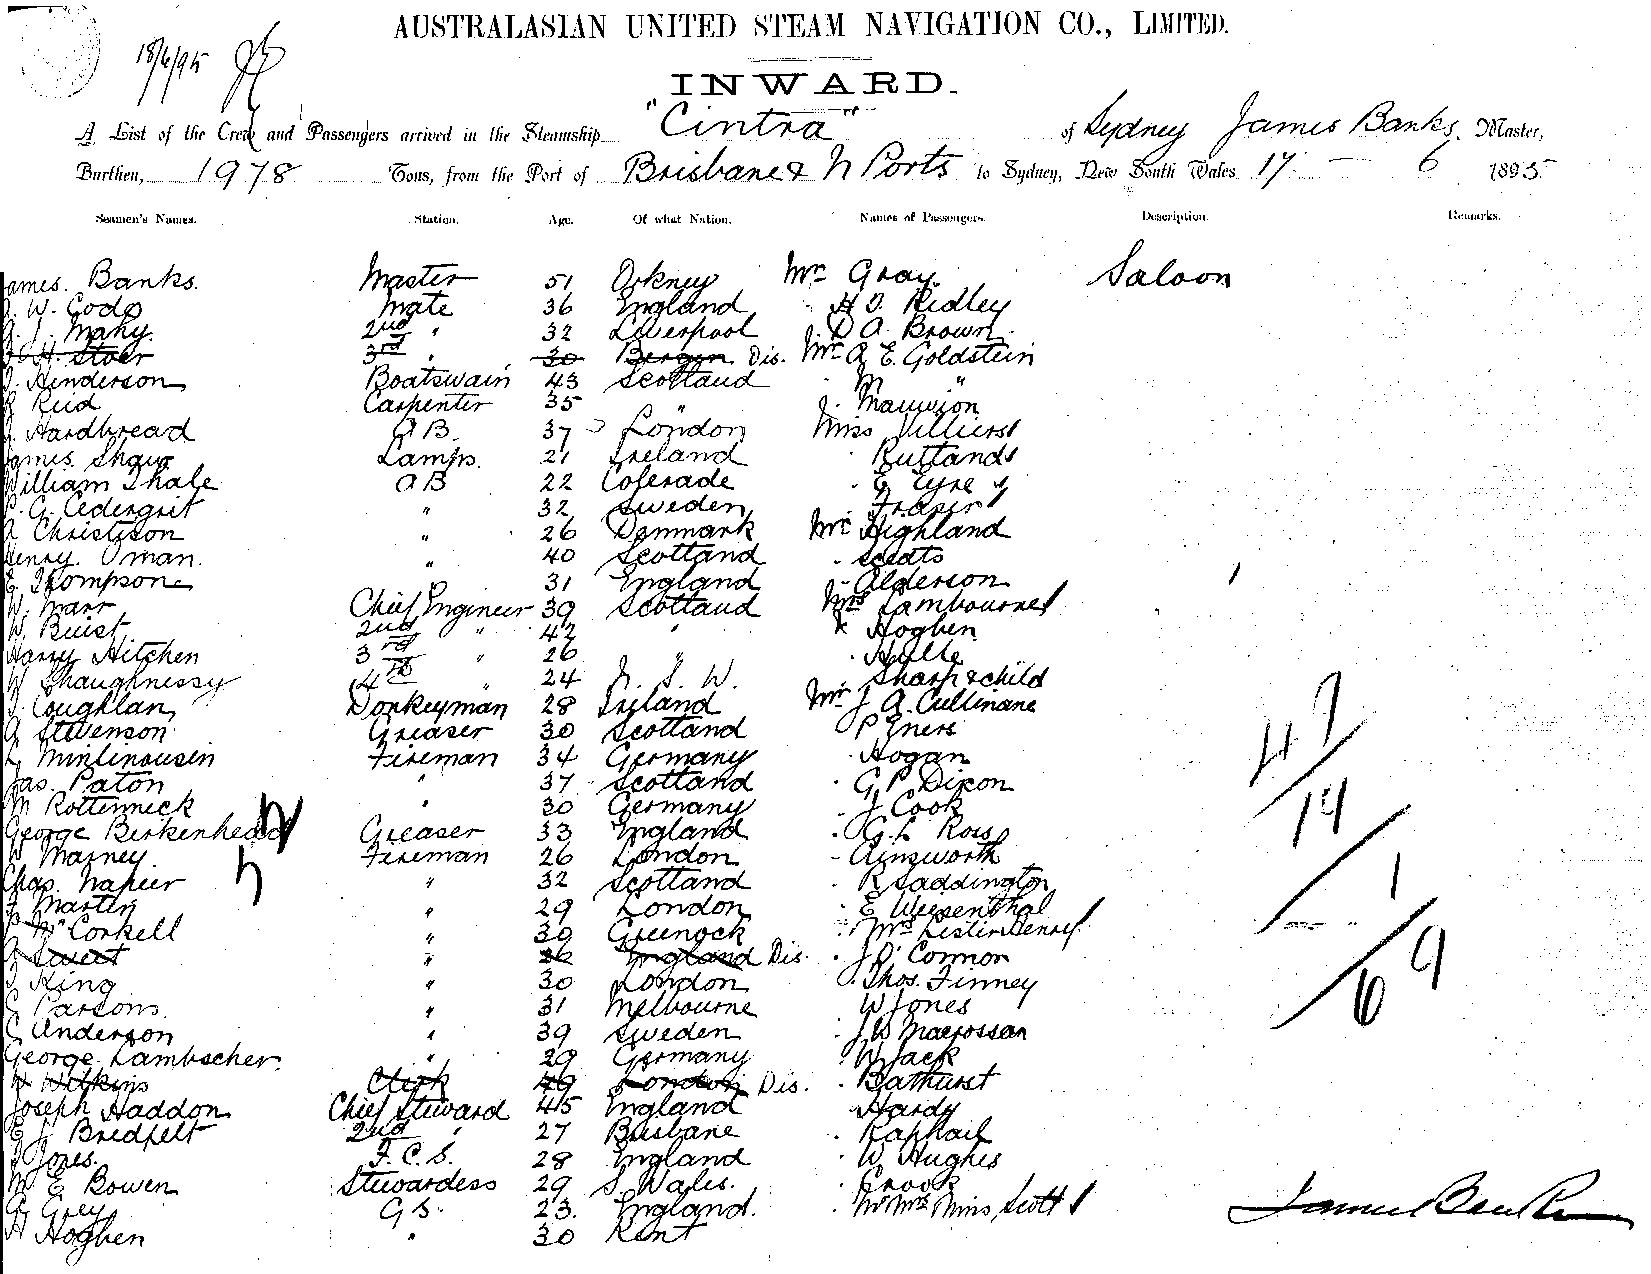 AUSTRALASIAN UNITED STEAM NAVIGATION CO., LIMITED.
18/6/95
INWARD.
A List of the Crew and Passengers arrived in the Steamship "Cintra" of Sydney James Banks, Master,
Burthen, 1978 Tons, from the Port of Brisbane & N Ports to Sydney, New South Wales 17 - 6 1895
Seamen's Names. Station. Age. Of what Nation. Names of Passengers. Description. Remarks.
ames. Banks. Master 51 Orkney Mr Gray. Saloon
W. Codo Mate 36 England H Ridley
Many. 2nd " 32 Liverpool D A. Brown
H. Stoer 3rd " 30 Bergen Dis. Mr A E. Goldstein
Henderson Boatswain 43 Scotland M "
Reid Carpenter 35 "
Hardbread A B. 37 London Miss Villiers
James Shaw Lamps. 21 Ireland Ruttands
William Thale A B 22 E Eyre
G. Cedergrit " 32 Sweden Fraser
A Christison " 26 Denmark Mr Highland
Henry. Oman. " 40 Scotland
E. Thompson 31 England Alderson
W. Marr Chief Engineer 39 Scotland Mrs Lambourne
W. Buist 2nd " 42 " Hogben
Harry Hitchen 3rd " 26 "
Shaughnessy 4th " 24 N. S. W. Sharp & child
Coughlan Donkeyman 28 Ireland Mr J A. Cullinane
Stevenson Greaser 30 Scotland P
Fireman 34 Germany Hogan
Jas. Paton " 37 Scotland G P Dixon
M Rottenneck " 30 Germany J Cook
George Birkenhead Greaser 33 England G. L Ross
W Marney. Fireman 26 London Ainsworth
Chas. Napier " 32 Scotland R Saddington
Martin " 29 London E Weesenthal
McCorkell " 30 Greenock Mrs
Sweet " England Dis. J O'Connor
King " 30 London Thos. Finney
Parsons. " 31 Melbourne W Jones
C Anderson " 39 Sweden J W Macrossan
George Lambscher. " 29 Germany W Jack
W Wilkins Clerk 49 London Dis. Bathurst
Joseph Haddon Chief Steward 45 England Hardy
E J. Bredfelt 2nd " 27 Brisbane Raphail
J Jones. F. C. S. 28 England W Hughes
M E Bowen Stewardess 29 S Wales. Crook
G Grey G S. 23. England. Mr Mrs Miss Scott
H Hogben " 30 Kent
47
14
1
69
James Banks